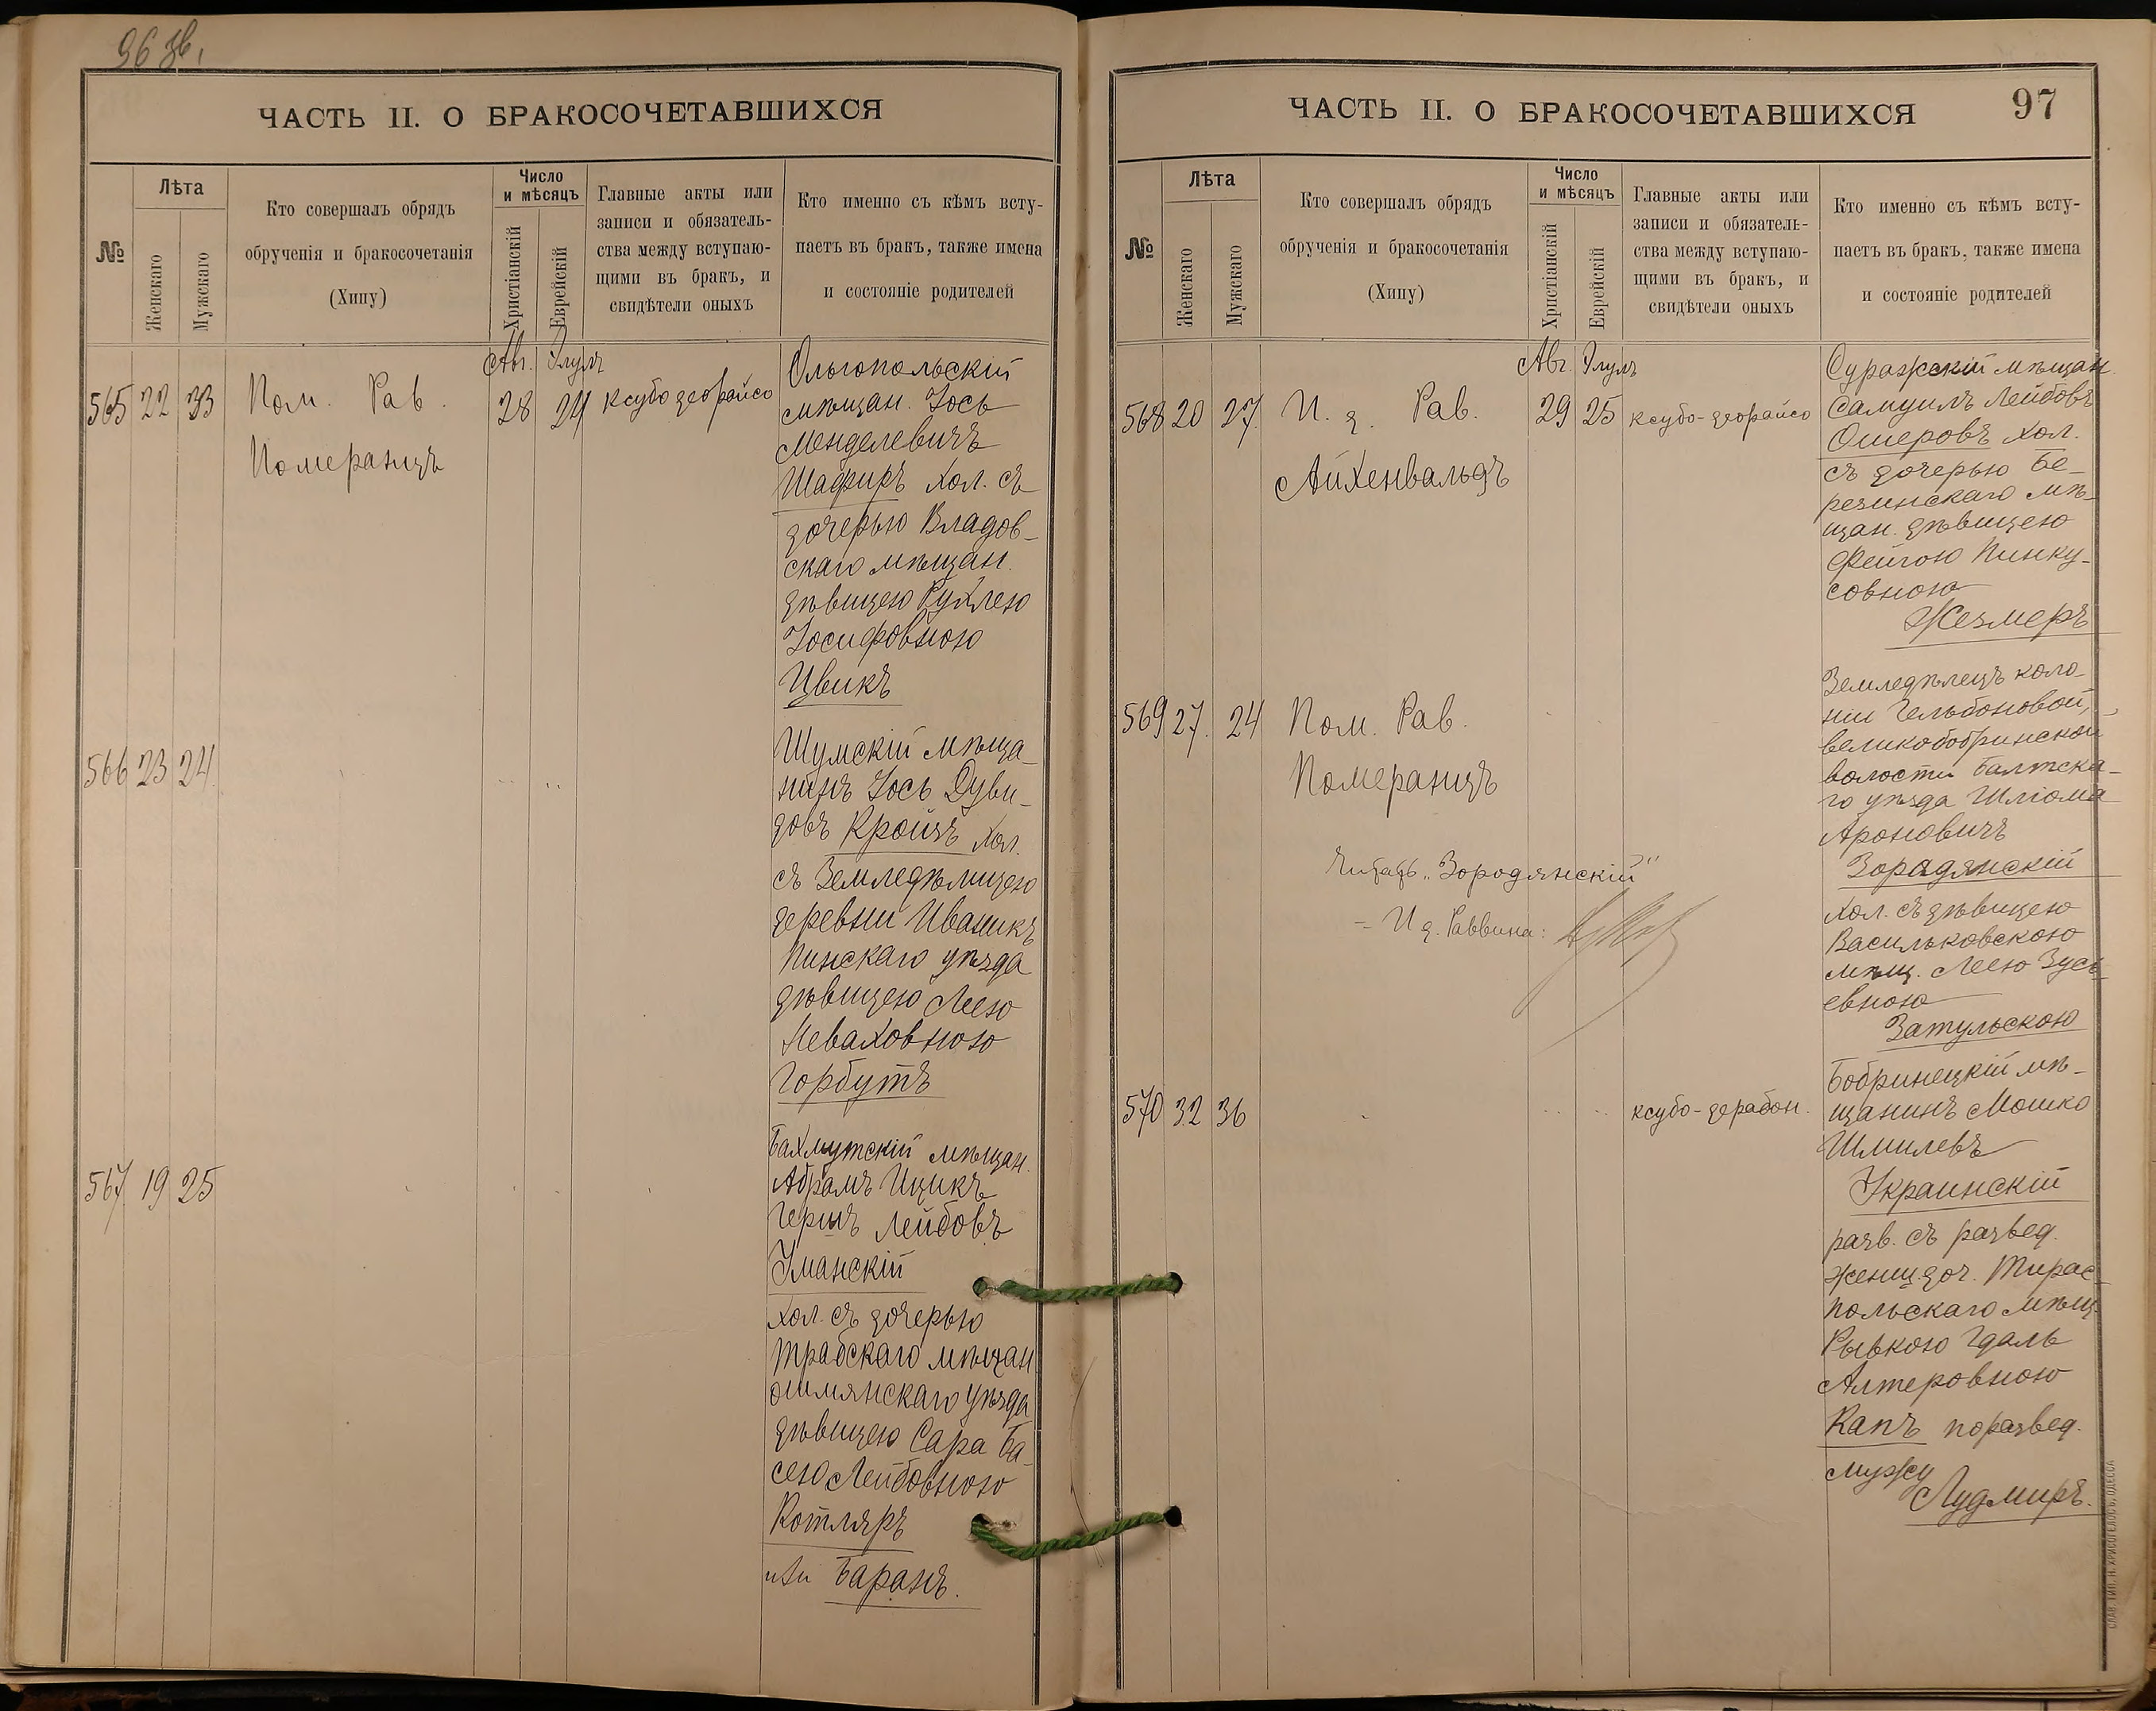 96 зв.
ЧАСТЬ II. О БРАКОСОЧЕТАВШИХСЯ
№
Лѣта
Женскаго
Мужскаго
Кто совершалъ обрядъ
обрученія и бракосочетанія
(Хипу)
Число
и мѣсяцъ
Христіанскій
Еврейскій
Главные акты или
записи и обязатель-
ства между вступаю-
щими въ бракъ, и
свидѣтели оныхъ
Кто именно съ кѣмъ всту-
паетъ въ бракъ, также имена
и состояніе родителей
Авг. Элулъ
565 22 33 Пом. Рав. 28 24 ксубо деорайсо
Померанцъ
Ольгопольскій
мѣщан. Іось
Менделевичъ
Шафиръ хол. съ
дочерью Владов-
скаго мѣщан.
дѣвицею Рухлею
Іосифовною
Цвикъ
566 23 24
Шумскій мѣща-
нинъ Іось Дуви-
довъ Кройзъ хол.
съ Земледѣлицею
деревни Иваникъ
Пинскаго уѣзда
дѣвицею Леею
Неваховною
Горбутъ
567 19 25
Бахмутскій мѣщан.
Абрамъ Ицикъ
Гершъ Лейбовъ
Уманскій
хол. съ дочерью
Трабскаго мѣщан
ошмянскаго уѣзда
дѣвицею Сара Ба-
сею Лейбовною
Котляръ
или Баранъ.
ЧАСТЬ II. О БРАКОСОЧЕТАВШИХСЯ
97
№
Лѣта
Женскаго
Мужскаго
Кто совершалъ обрядъ
обрученія и бракосочетанія
(Хипу)
Число
и мѣсяцъ
Христіанскій
Еврейскій
Главные акты или
записи и обязатель-
ства между вступаю-
щими въ бракъ, и
свидѣтели оныхъ
Кто именно съ кѣмъ всту-
паетъ въ бракъ, также имена
и состояніе родителей
Авг. Элулъ
568 20 27. И. д. Рав. 29 25 ксубо-деорайсо
Айхенвальдъ
Суражскій мѣщан.
Самуилъ Лейбовъ
Ошеровъ хол.
съ дочерью Бе-
резинскаго мѣ-
щан. дѣвицею
Фейгою Пинку-
совною
Жезмеръ
569 27. 24 Пом. Рав.
Померанцъ
Читать „Зородянскій"
- И д. Раввина:
Земледѣлецъ коло-
ніи Гельбоновой,
великобобринской
волости Балтска-
го уѣзда Шліома
Ароновичъ
Зорадянскій
хол. съ дѣвицею
Васильковскою
мѣщ. Леею Зусь-
евною
Затульскою
570 32 36 ксубо-дерабон.
Бобринецкій мѣ-
щанинъ Мошко
Шмилевъ
Украинскій
разв. съ развед.
женщ. доч. Тирас-
польскаго мѣщ.
Рывкою Гдаль
Алтеровною
Капъ по развед.
мужу
Лудмиръ.
СЛАВ. ТИП. Н. ХРИСОГЕЛОСЪ, ОДЕССА